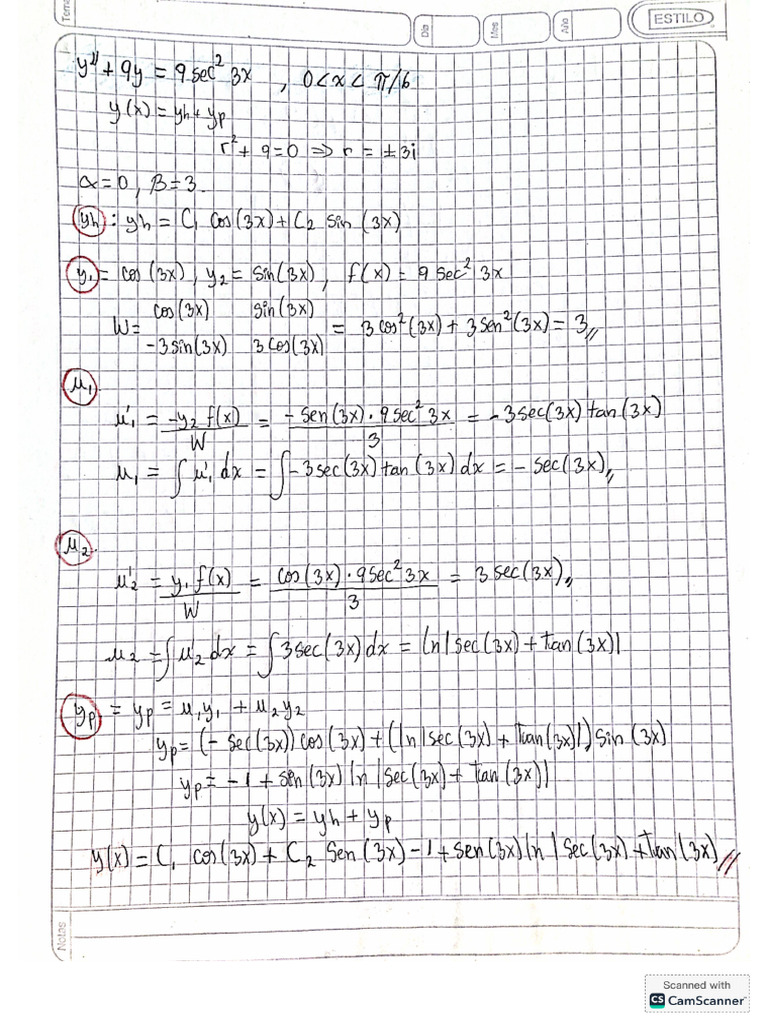 Tema
Día
Mes
Año
ESTILO
y'' + 9y = 9 sec² 3x , 0 < x < π/6
y(x) = yh + yp
r² + 9 = 0 ⇒ r = ±3i
α = 0 , β = 3.
yh : yh = C₁ cos(3x) + C₂ sin (3x)
y₁ = cos (3x) , y₂ = sin(3x) , f(x) = 9 sec² 3x
W = cos(3x) sin(3x) = 3 cos²(3x) + 3 sen²(3x) = 3//
-3 sin(3x) 3 cos(3x)
μ₁
μ'₁ = -y₂ f(x) / W = - sen(3x) · 9 sec² 3x / 3 = -3 sec(3x) tan (3x)
μ₁ = ∫ μ'₁ dx = ∫ -3 sec(3x) tan (3x) dx = - sec(3x)//
μ₂.
μ'₂ = y₁ f(x) / W = cos (3x) · 9 sec² 3x / 3 = 3 sec(3x)//
μ₂ = ∫ μ'₂ dx = ∫ 3 sec(3x) dx = ln | sec(3x) + tan (3x)|
yp = yp = μ₁y₁ + μ₂y₂
yp = (- sec(3x)) cos(3x) + (ln |sec(3x) + tan(3x)|) sin (3x)
yp = -1 + sin(3x) ln |sec(3x) + tan (3x)|
y(x) = yh + yp
y(x) = C₁ cos(3x) + C₂ Sen (3x) -1 + sen(3x) ln | sec(3x) + tan (3x)//
Notas
Scanned with
CS CamScanner